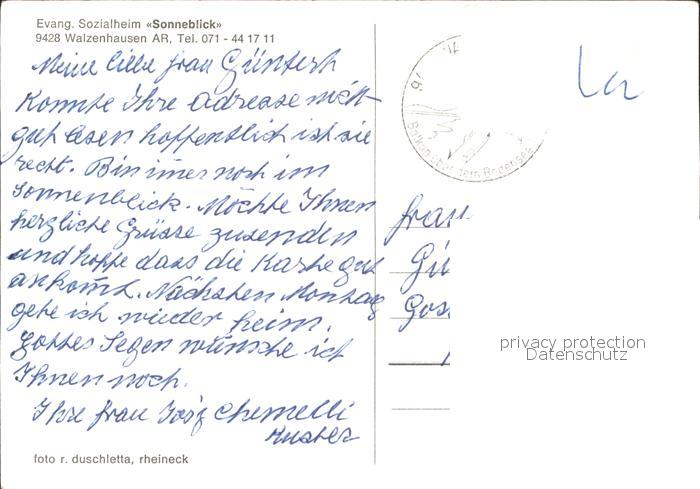 Evang. Sozialheim «Sonneblick»
9428 Walzenhausen AR, Tel. 071 - 44 17 11
Meine liebe frau Günter
Konnte Ihre adresse nicht
gut lesen hoffentlich ist sie
recht. Bin imer noch im
Sonnenblick. Möchte Ihnen
herzliche Grüsse zusenden
und hoffe dass die Karte gut
ankomt. Nächsten Montag
gehe ich wieder heim.
Gottes Segen wünsche ich
Ihnen noch.
Ihre frau Chemelli
foto r. duschletta, rheineck
frau
Gü
Gos
privacy protection
Datenschutz
Balkon über dem Bodensee